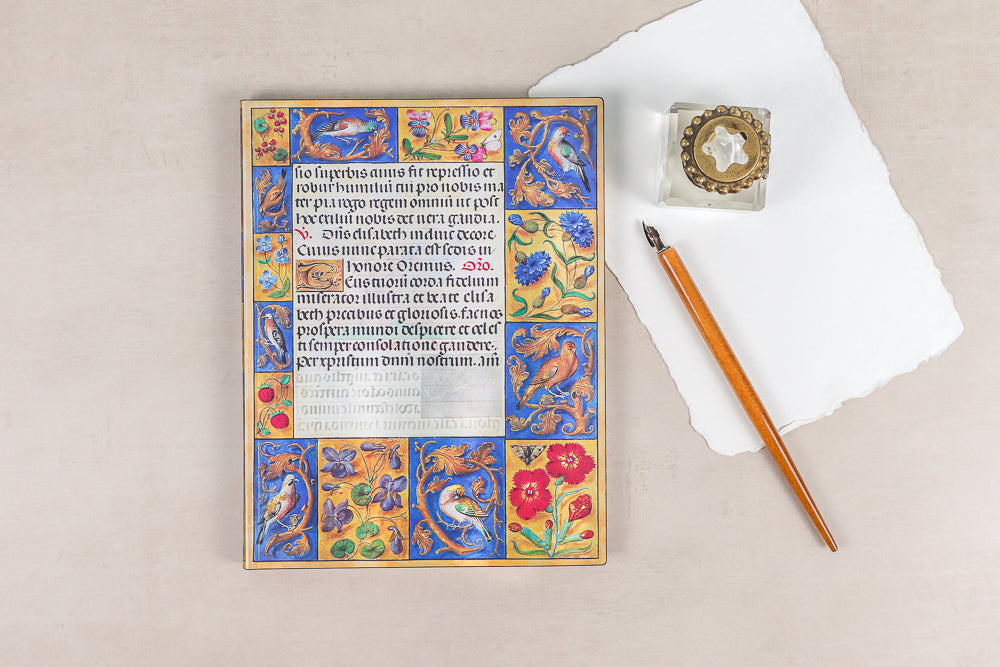 sio superbis civis fit repressio et
robur humiliū tui pro nobis ma
ter pia rogo regem omniū ut post
hoc exiliū nobis det vera gaudia.
V. Dn̄s elisabeth induit decore.
Cuius nunc parata est sedis in
honore Oremus. Or̄o.
Eus tuorū corda fidelium
miserator illustra et beate elisa
beth precibus et gloriosis. fac nos
prospera mundi despicere et celes
ti semper consolatione gaudere.
per xpristum dnm̄ nostrum. am̄